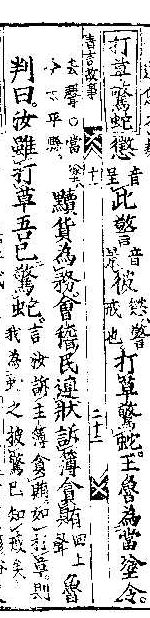 打草驚蛇 懲 音 此警 音 景 彼 懲警 戒也 打草驚蛇。王魯為當塗令。
書言故事 十一 二十二
去聲○當塗 今太平縣 黷貨為務。會稽民連狀訴簿貪賄 上聲 魯
判曰。汝雖打草吾已驚蛇。言汝訴主簿貪賄。如打草。則
我為蛇之被驚已知戒矣